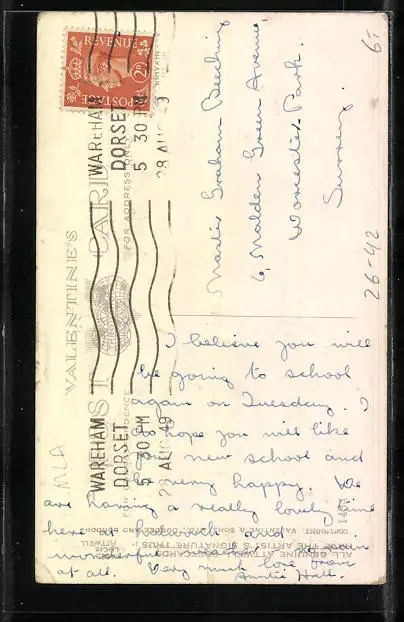 REVENUE
POSTAGE
2D
WAREHAM
DORSET
5 30 PM
28 AUG 49
WAREHAM
DORSET
5 30 PM
28 AUG 49
VALENTINE'S
POST CARD
FOR ADDRESS ONLY
Master Graham Beeching
6, Malden Green Avenue
Worcester Park.
Surrey.
6/-
26-42
MLA
I believe you will
be going to school
again on Tuesday. I
do hope you will like
new school and
be very happy. We
are having a really lovely time
here at and
wonderful
at all. Very much love from
Auntie
1464
COPYRIGHT. VALENTINE & SONS, LTD., DUNDEE AND LONDON
ALL GENUINE POSTCARDS
THE ARTIST'S SIGNATURE THUS :
LUCIE
ATTWELL